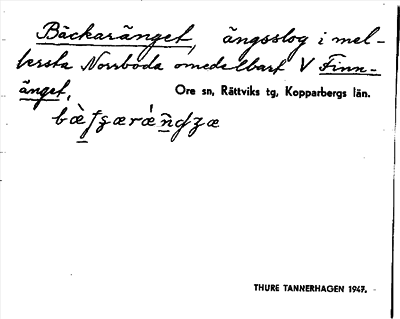 Bäckaränget, ängsslog i mel-
lersta Norrboda omedelbart V Finn-
änget,
Ore sn, Rättviks tg, Kopparbergs län.
THURE TANNERHAGEN 1947.